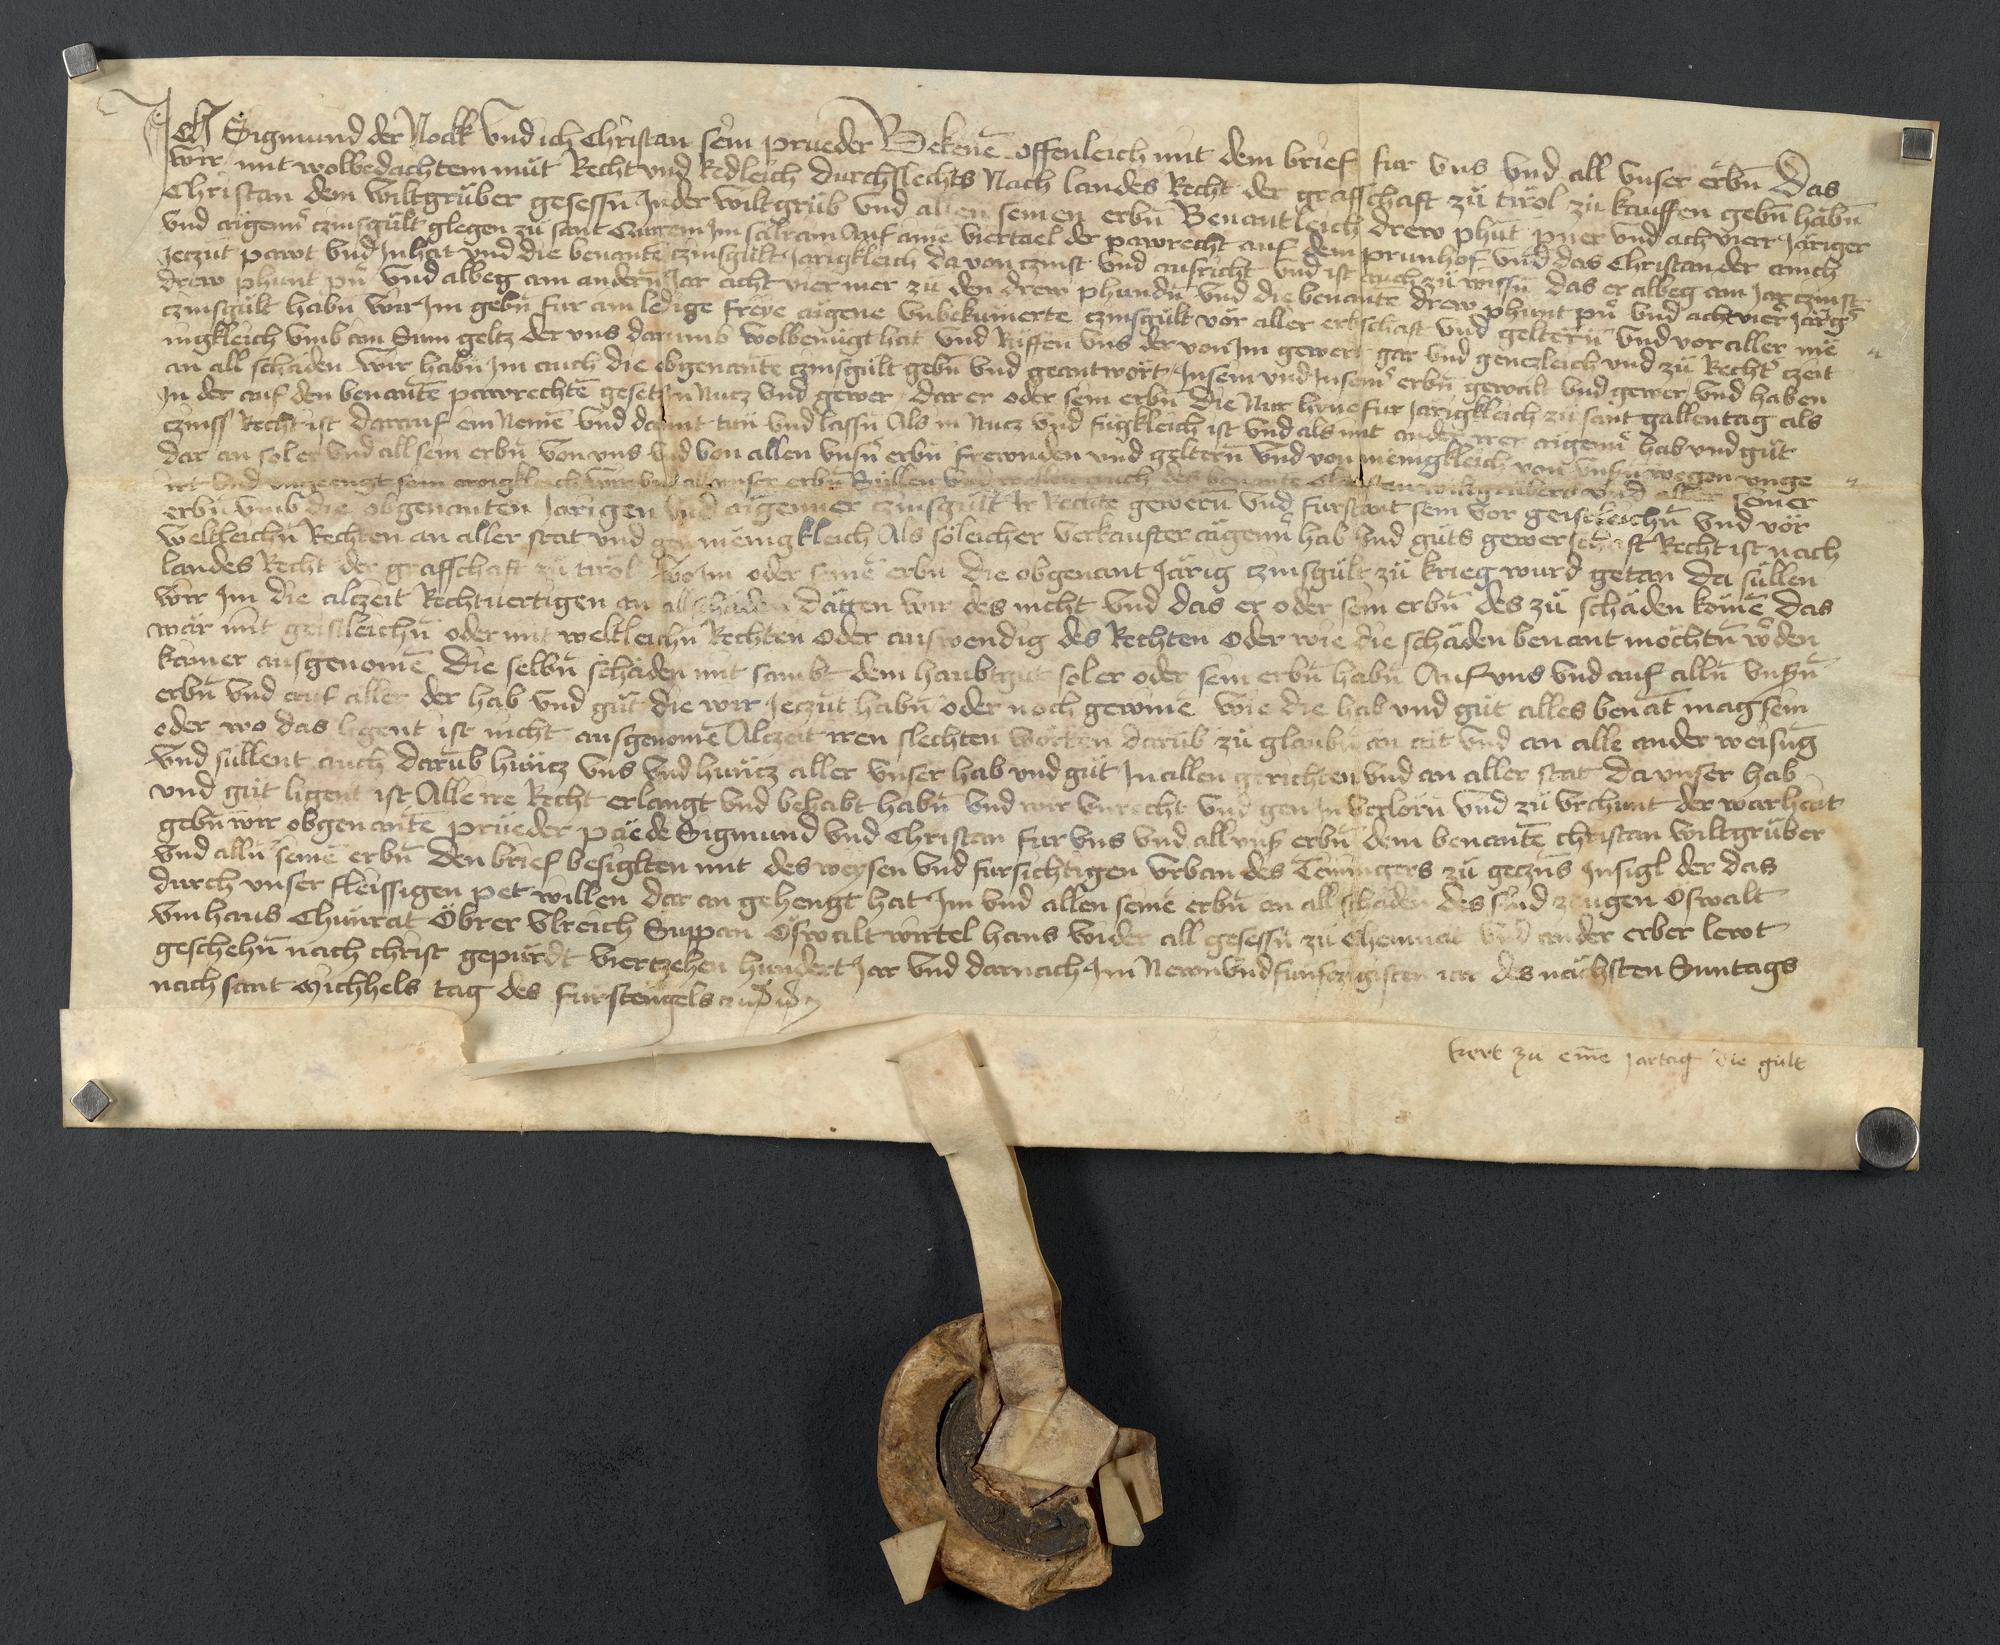 Ich Sigmund der Nock vnd ich Christan sein prueder Bekenē offenleich mit dem brief fur vns vnd all vnser erbn̄ Das
wir mit wolbedachtem müt Recht vnd Redleich durchslechts Nach landes Recht der graffschaft zů tirol zu kauffen gebn̄ habn̄
Christan dem wiltgrüber gesessn̄ Jn der wiltgrüb vnd allen seinen erbn̄ Benantleich drew phūt pner vnd acht vierr Järiger
vnd aigenn̄ czinsgült glegen zů sant im auf aine viertael der pawrecht auf dem prunhof vnd das Christan der
Jeczūt pawt vnd Jnhat vnd die benante czinsgült Järigkleich da von czinst vnd ausricht vnd ist auch zů wissn̄ das er albeg am Jar czinst
drew phunt pn̄ vnd albeg am andern Jar acht vier mer zu den drew phundn̄ vnd die benante drew phunt pn̄ vnd acht vier Järig
czinsgült habn̄ wir Jm gebn̄ fur ain ledige freye aigene vnbekumerte czinsgült vor aller erbschaft vnd geltern̄ vnd vor aller me
nigkleich vmb ain Sum geltz der vns darumb wolbenügt hat vnd Rüffen vns der von Jm gewert gar vnd genczleich vnd zů Rechter czeit
an all schäden wir habn̄ Jm auch die obgenante czinsgült gebn̄ vnd geantwört Jn sein vnd Jn seinr erbn̄ gewalt vnd gewer vnd haben
Jn der auf den benantē pawrechtē gesetzt Jn Nucz vnd gewer dar er oder sein erbn̄ die Nur hyne fur Järigkleich zů sant gallentag als
czinss Recht ist darauf ein Nemē vnd damit tün vnd lassn̄ Als in Nucz vnd fügkleich ist vnd als mit andrer irer aigenn̄ hab vnd güt
dar an sol er vnd all sein erbn̄ von vns vnd von allen vnsrn erbn̄ frewnden vnd geltern̄ vnd von mēnigkleich von vnsrn wegen vnge
irt vnd vngeengt sein ewigkleich wir vnd all vnser erbn̄ Süllen vnd wellen auch des benante wiltgrübers vnd aller seiner
erbn̄ vmb die obgenanten Järigen vnd aigenner czinsgült Jr Rechte gewern̄ vnd furstant sein vor geistleichn̄ vnd vor
weltleichn̄ Rechten an aller stat vnd gen mēnigkleich Als söleicher verkaufter aigenn̄ hab vnd güts gewerschaft Recht ist nach
landes Recht der graffschaft zů tirol wo Jm oder seinē erbn̄ die obgenant Järig czinsgült zů krieg wurd getan da süllen
wir Jm die alczeit Rechtuertigen an all schäden däten wir des nicht vnd das er oder sein erbn̄ des zů schäden kömē das
wär mit geistleichn̄ oder mit weltleichn̄ Rechten oder auswendig des Rechten Oder wie die schäden benant möchtn̄ werden
kainer ausgenomē Die selbn̄ schäden mit sambt dem haubtgut sol er oder sein erbn̄ habn̄ Auf vns vnd auf alln̄ vnsrn̄
erbn̄ vnd auf aller der hab vnd güt die wir Jeczūt habn̄ oder noch gewinē wie die hab vnd güt alles benāt mag sein
oder wo das ligent ist nicht ausgenomē Alczeit iren slechten worten darūb zů glaubn̄ an ait vnd an alle ander weisūg
vnd süllent auch darūb hincz vns vnd hincz aller vnser hab vnd güt Jn allen gerichten vnd an aller stat da vnser hab
vnd güt ligent ist Alle ire Recht erlangt vnd behabt habn̄ vnd wir vnrecht vnd gen Jn verlorn̄ vnd zů vrchunt der warhait
gebn̄ wir obgenantē prüeder päede Sigmund vnd Christan fur vns vnd all vnser erbn̄ dem benantē christan wiltgrüber
vnd alln̄ seinē erbn̄ den brief besiglten mit des weysen vnd fursichtigen vrban des zů Jnsigl der das
durch vnser fleissigen pet willen dar an gehengt hat Jm vnd allen seinē erbn̄ an all schäden des sind zeugen Oswalt
vmhaus Chünrat Öbrer vlreich Suppan Oswalt wirtel hans wider all gesessn̄ zů Chemnat vnd ander erber lewt
geschehn̄ nach christ gepürdt viertzehen hundert Jar vnd darnach Jm Newnvndfunfczigisten iar des nächsten Suntags
nach sant Michhels tag des furstengels
kert zu eine jartag die gült